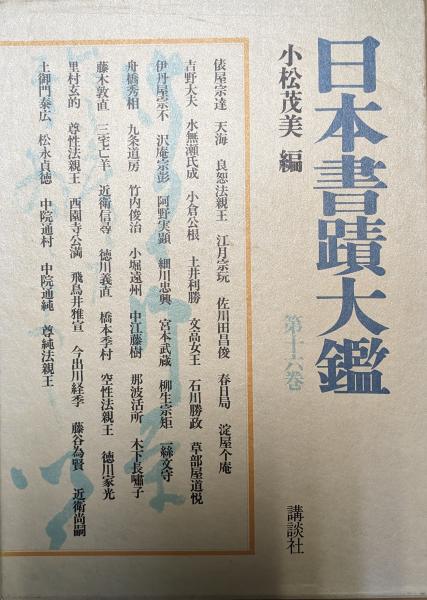 日本書蹟大鑑
第十六巻
小松茂美 編
講談社
俵屋宗達 天海 良恕法親王 江月宗玩 佐川田昌俊 春日局 淀屋个庵
吉野大夫 水無瀬氏成 小倉公根 土井利勝 文高女王 石川勝政 草部屋道悦
伊丹屋宗不 沢庵宗彭 阿野実顕 細川忠興 宮本武蔵 柳生宗矩 一絲文守
舟橋秀相 九条道房 竹内俊治 小堀遠州 中江藤樹 那波活所 木下長嘯子
藤木敦直 三宅亡羊 近衛信尋 徳川義直 橋本季村 空性法親王 徳川家光
里村玄的 尊性法親王 西園寺公満 飛鳥井雅宣 今出川経季 藤谷為賢 近衛尚嗣
土御門泰広 松永貞徳 中院通村 中院通純 尊純法親王